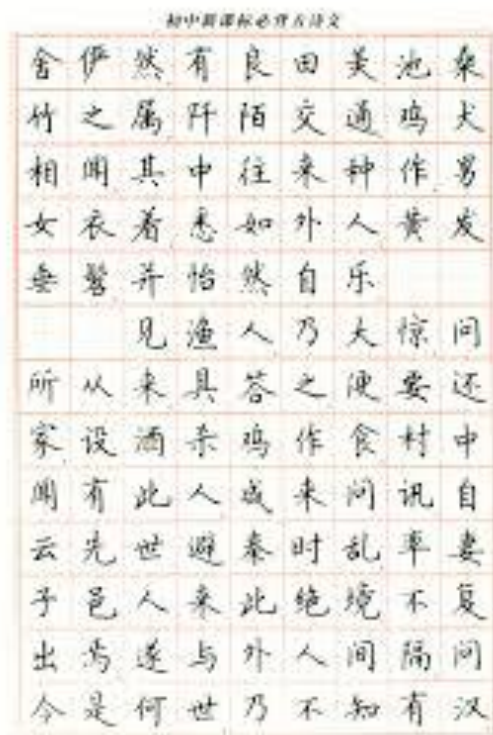 初中新课标必背古诗文
舍俨然有良田美池桑
竹之属阡陌交通鸡犬
相闻其中往来种作男
女衣着悉如外人黄发
垂髫并怡然自乐
见渔人乃大惊问
所从来具答之便要还
家设酒杀鸡作食村中
闻有此人咸来问讯自
云先世避秦时乱率妻
子邑人来此绝境不复
出焉遂与外人间隔问
今是何世乃不知有汉